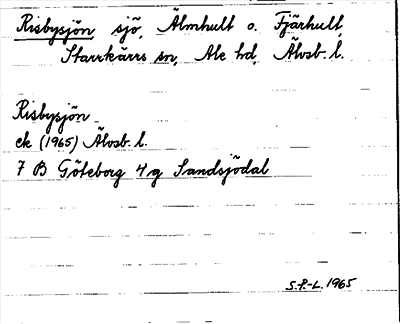 Risbysjön sjö, Älmhult o. Fjärhult,
Starrkärrs sn, Ale hd, Älvsb. l.
Risbysjön
ek (1965) Älvsb. l.
7 B Göteborg 4 g Sandsjödal
S.P.-L. 1965